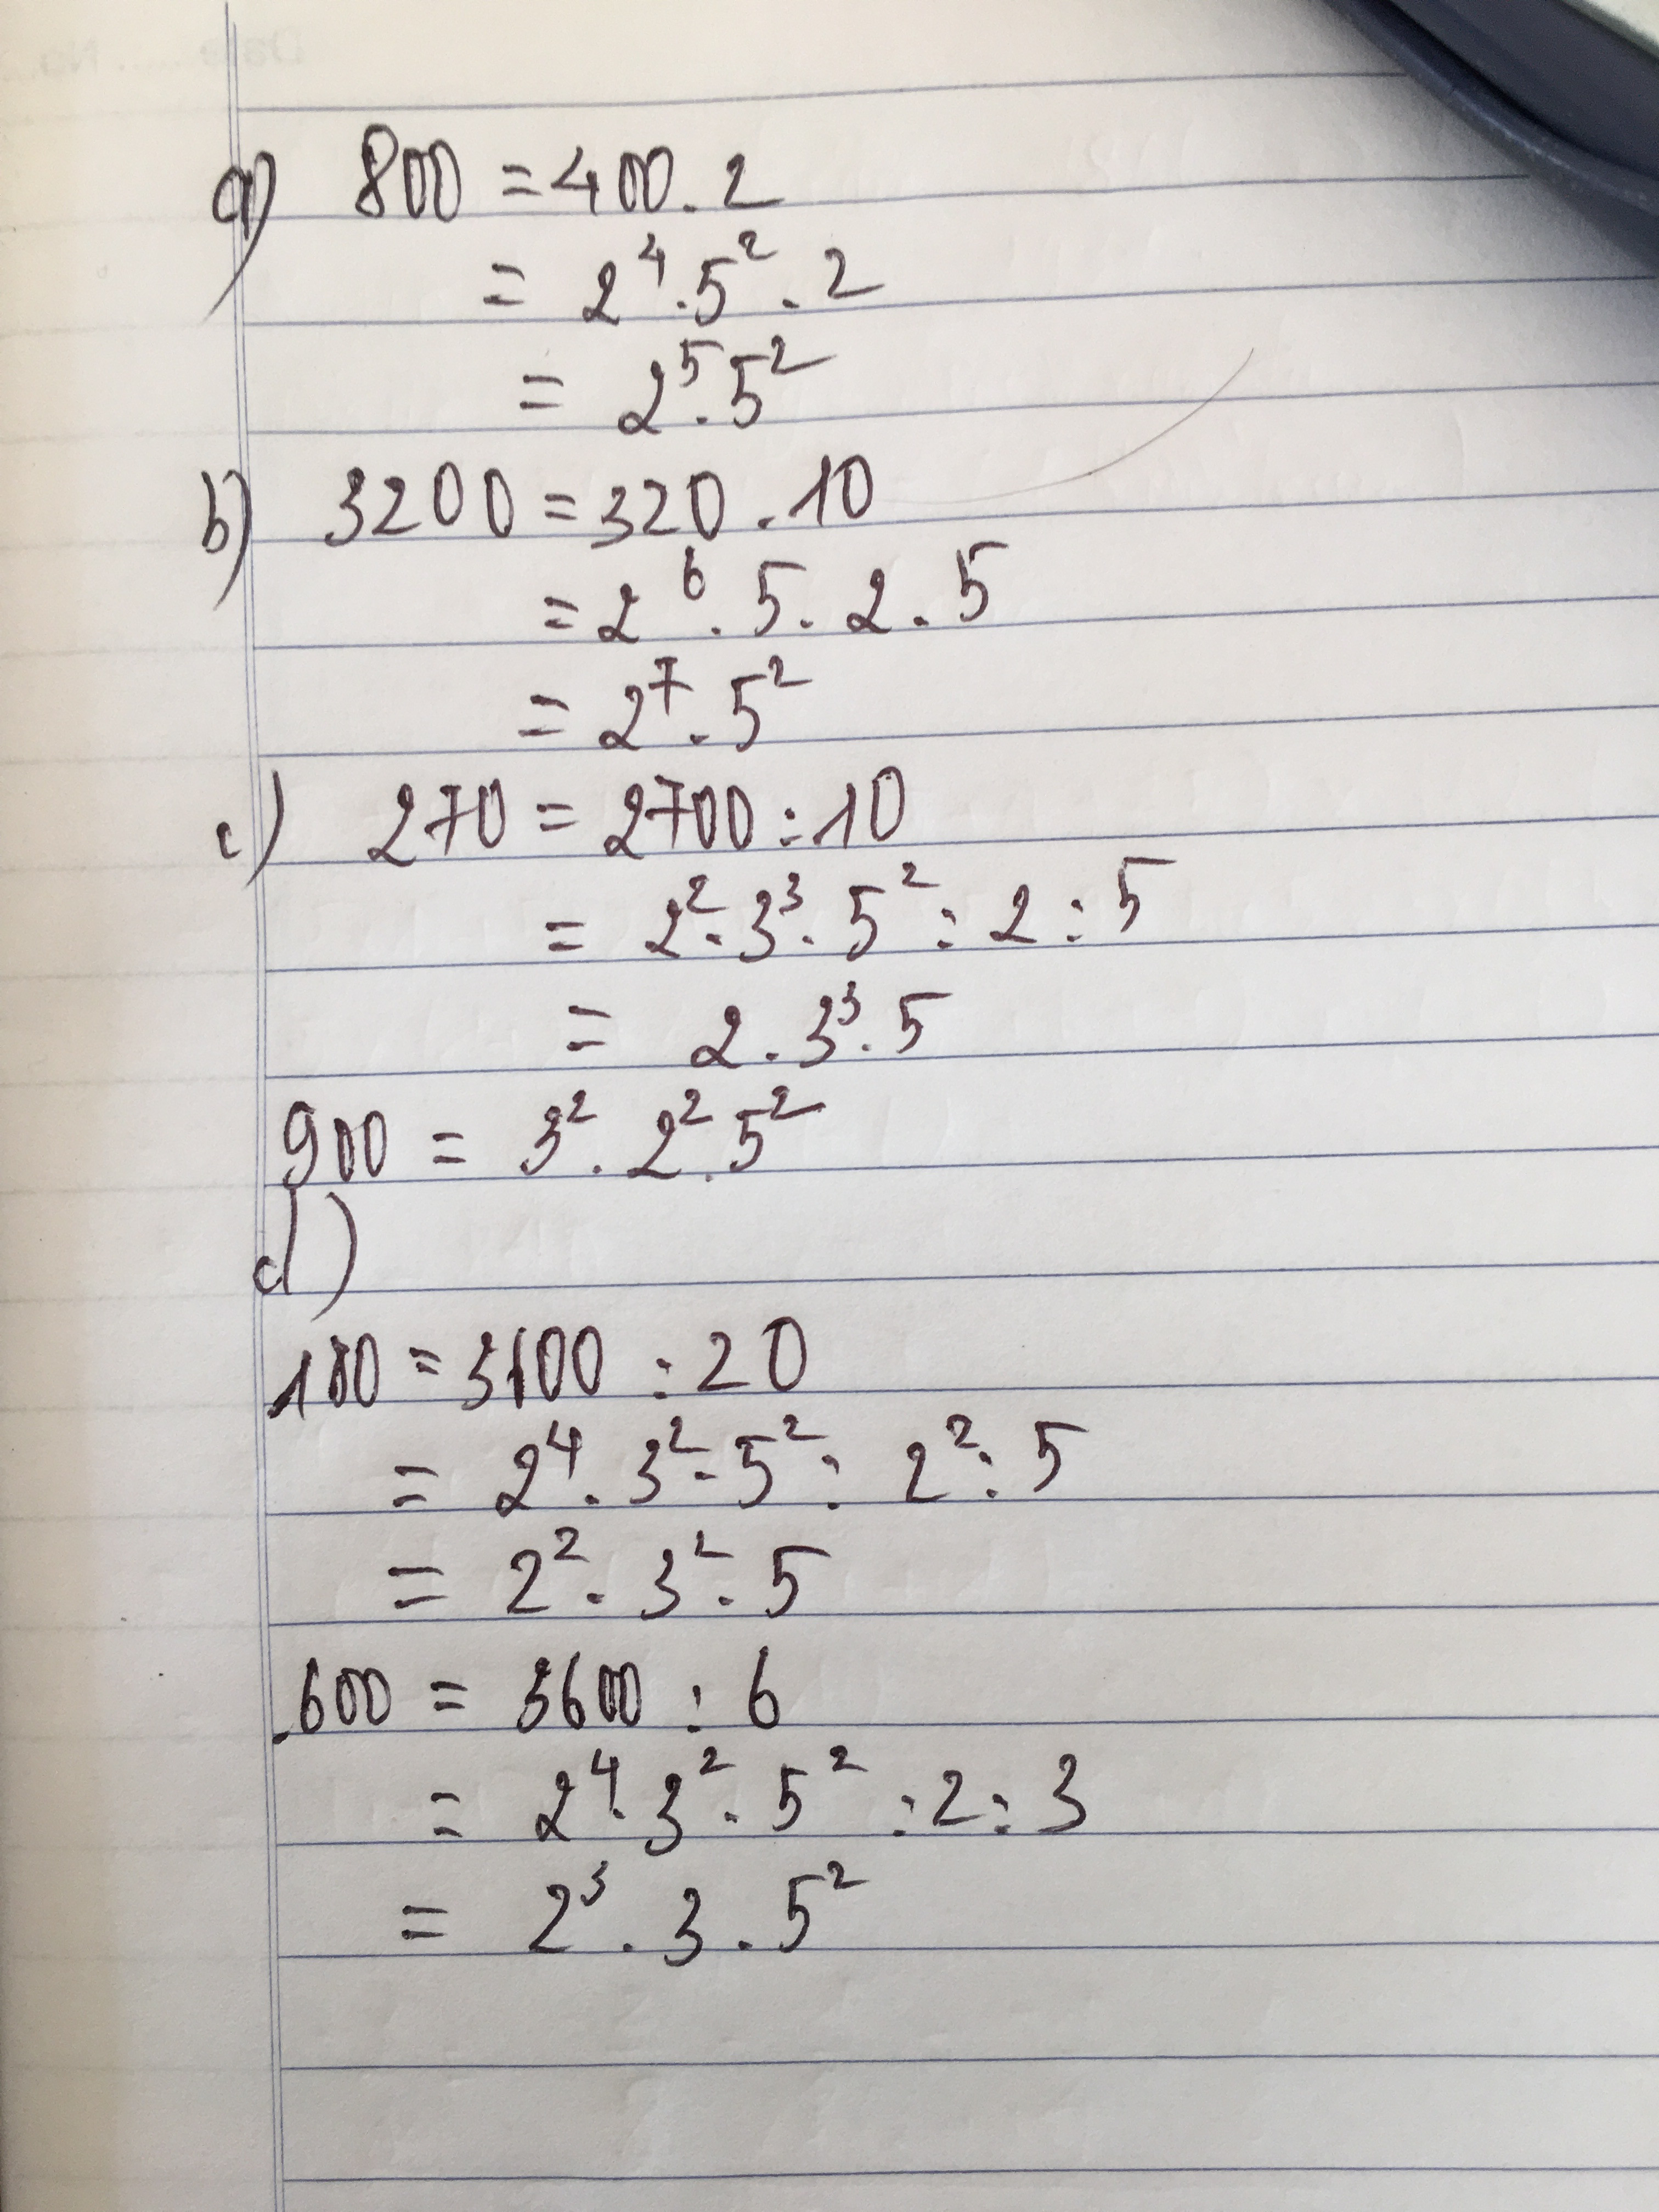 a) 800 = 400 . 2
= 2⁴ . 5² . 2
= 2⁵ . 5²
b) 3200 = 320 . 10
= 2⁶ . 5 . 2 . 5
= 2⁷ . 5²
c) 270 = 2700 : 10
= 2² . 3³ . 5² : 2 : 5
= 2 . 3³ . 5
900 = 3² . 2² . 5²
d)
180 = 3600 : 20
= 2⁴ . 3² . 5² : 2² : 5
= 2² . 3² . 5
600 = 3600 : 6
= 2⁴ . 3² . 5² : 2 : 3
= 2³ . 3 . 5²